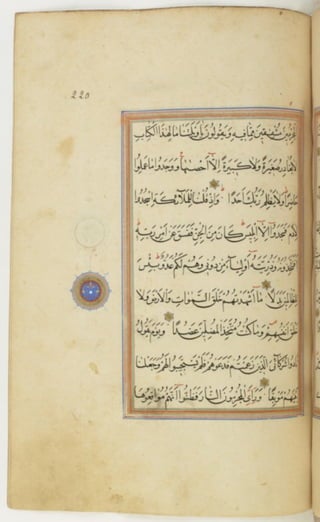 220
لمجرمين مشفقين مما فيه ويقولون ياويلتنا مال هذا الكتاب
لا يغادر صغيرة ولا كبيرة الا احصيها ووجدوا ما عملوا
حاضرا ولا يظلم ربك احدا واذ قلنا للملائكة اسجدوا
لادم فسجدوا الا ابليس كان من الجن ففسق عن امر ربه
افتتخذونه وذريته اولياء من دوني وهم لكم عدو بئس
للظالمين بدلا ما اشهدتهم خلق السموات والارض ولا
خلق انفسهم وما كنت متخذ المضلين عضدا ويوم يقول
نادوا شركائي الذين زعمتم فدعوهم فلم يستجيبوا لهم وجعلنا
بينهم موبقا ورأى المجرمون النار فظنوا انهم مواقعوها